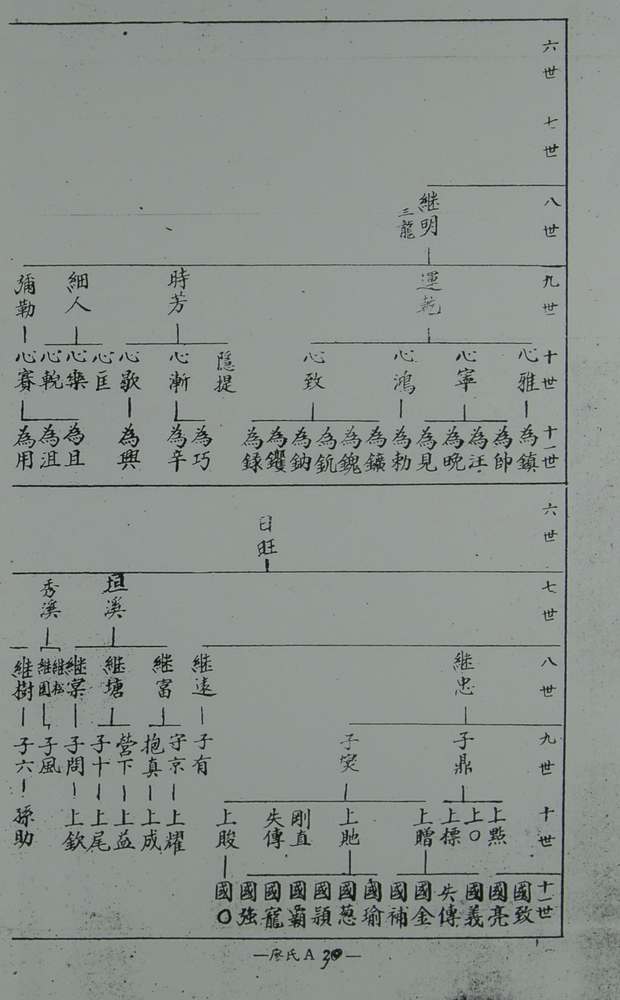 六世
七世
八世
継明
三龍
九世
運乾
時芳
細人
彌勒
十世
心雅
心寧
心鴻
心致
隱提
心漸
心歌
心匡
心樂
心輗
心賽
十一世
為鎮
為帥
為汪
為晚
為見
為勅
為鑛
為鋔
為鈧
為鈉
為钁
為録
為巧
為辛
為興
為且
為沮
為用
六世
日旺
七世
垣溪
秀溪
八世
継忠
継遠
継富
継塘
継業
継松
継園
継樹
九世
子鼎
子突
子有
守京
抱真
營下
子十
子問
子風
子六
十世
上點
上〇
上標
上贈
上貤
剛直
失傳
上賐
上耀
上成
上益
上尾
上欽
孫助
十一世
國致
國亮
國義
失傳
國金
國補
國瑜
國葱
國頴
國霸
國寵
國強
國〇
—廖氏A30—